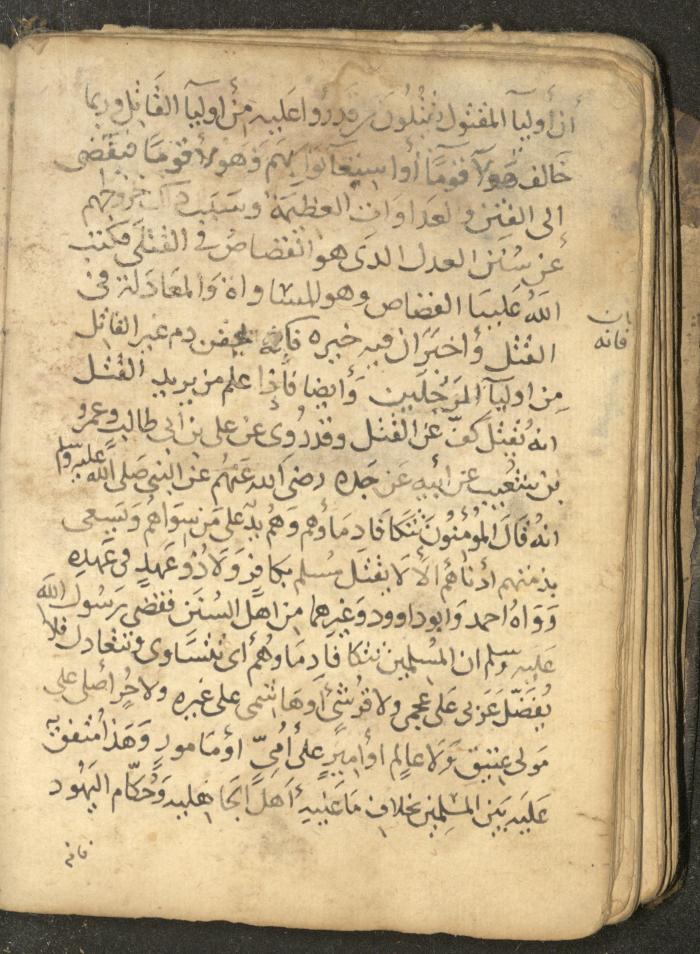 أن أوليآ المقتول يقتلون من قدروا عليه من أوليآ القاتل وربما
خالف هولآ قومًا أوا ستعانوا بهم وهولآ قومًا فيفضى
الى الفتن والعداوات العظيمة وسبب ذلك خروجهم
عن سنن العدل الذى هو القصاص في القتلى فكتب
الله علينا القصاص وهو المساواة والمعادلة فى
القتل وأخبر أن فيه خيره فإنه يحقن دم غير القاتل
من أوليآ المرجلين وأيضا فاذا علم من يريد القتل
انه يقتل كف عن القتل وقد روى عن على بن أبى طالب وعمرو
بن شعيب عن ابيه عن جده رضى الله عنهم عن النبى صلى الله عليه وسلم
انه قال المؤمنون تتكافا دماؤهم وهم يد على من سواهم ويسعى
بذمتهم أدناهم ألا لا يقتل مسلم بكافر ولا ذو عهد فى عهده
ووواه احمد وابو داوود وغيرهما من اهل السنن فقضى رسول الله
عليه وسلم ان المسلمين تتكافا دماوهم أى تتساوى وتتعادل فلا
يفضل عربى على عجمى ولا قرشى أو هاشمى على غيره ولا حر أصلى على
مولى عتيق ولا عالم او أمير على أمى او مامور وهذا متفق
عليه بين المسلمين بخلاف ما عليه أهل الجاهليه وحكام اليهود
بان
فانه
فانه